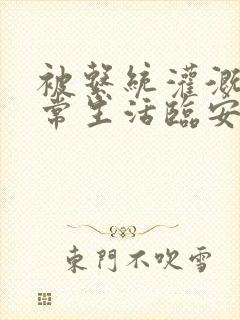 被繫統灌溉
常生活臨安
東門不吹雪